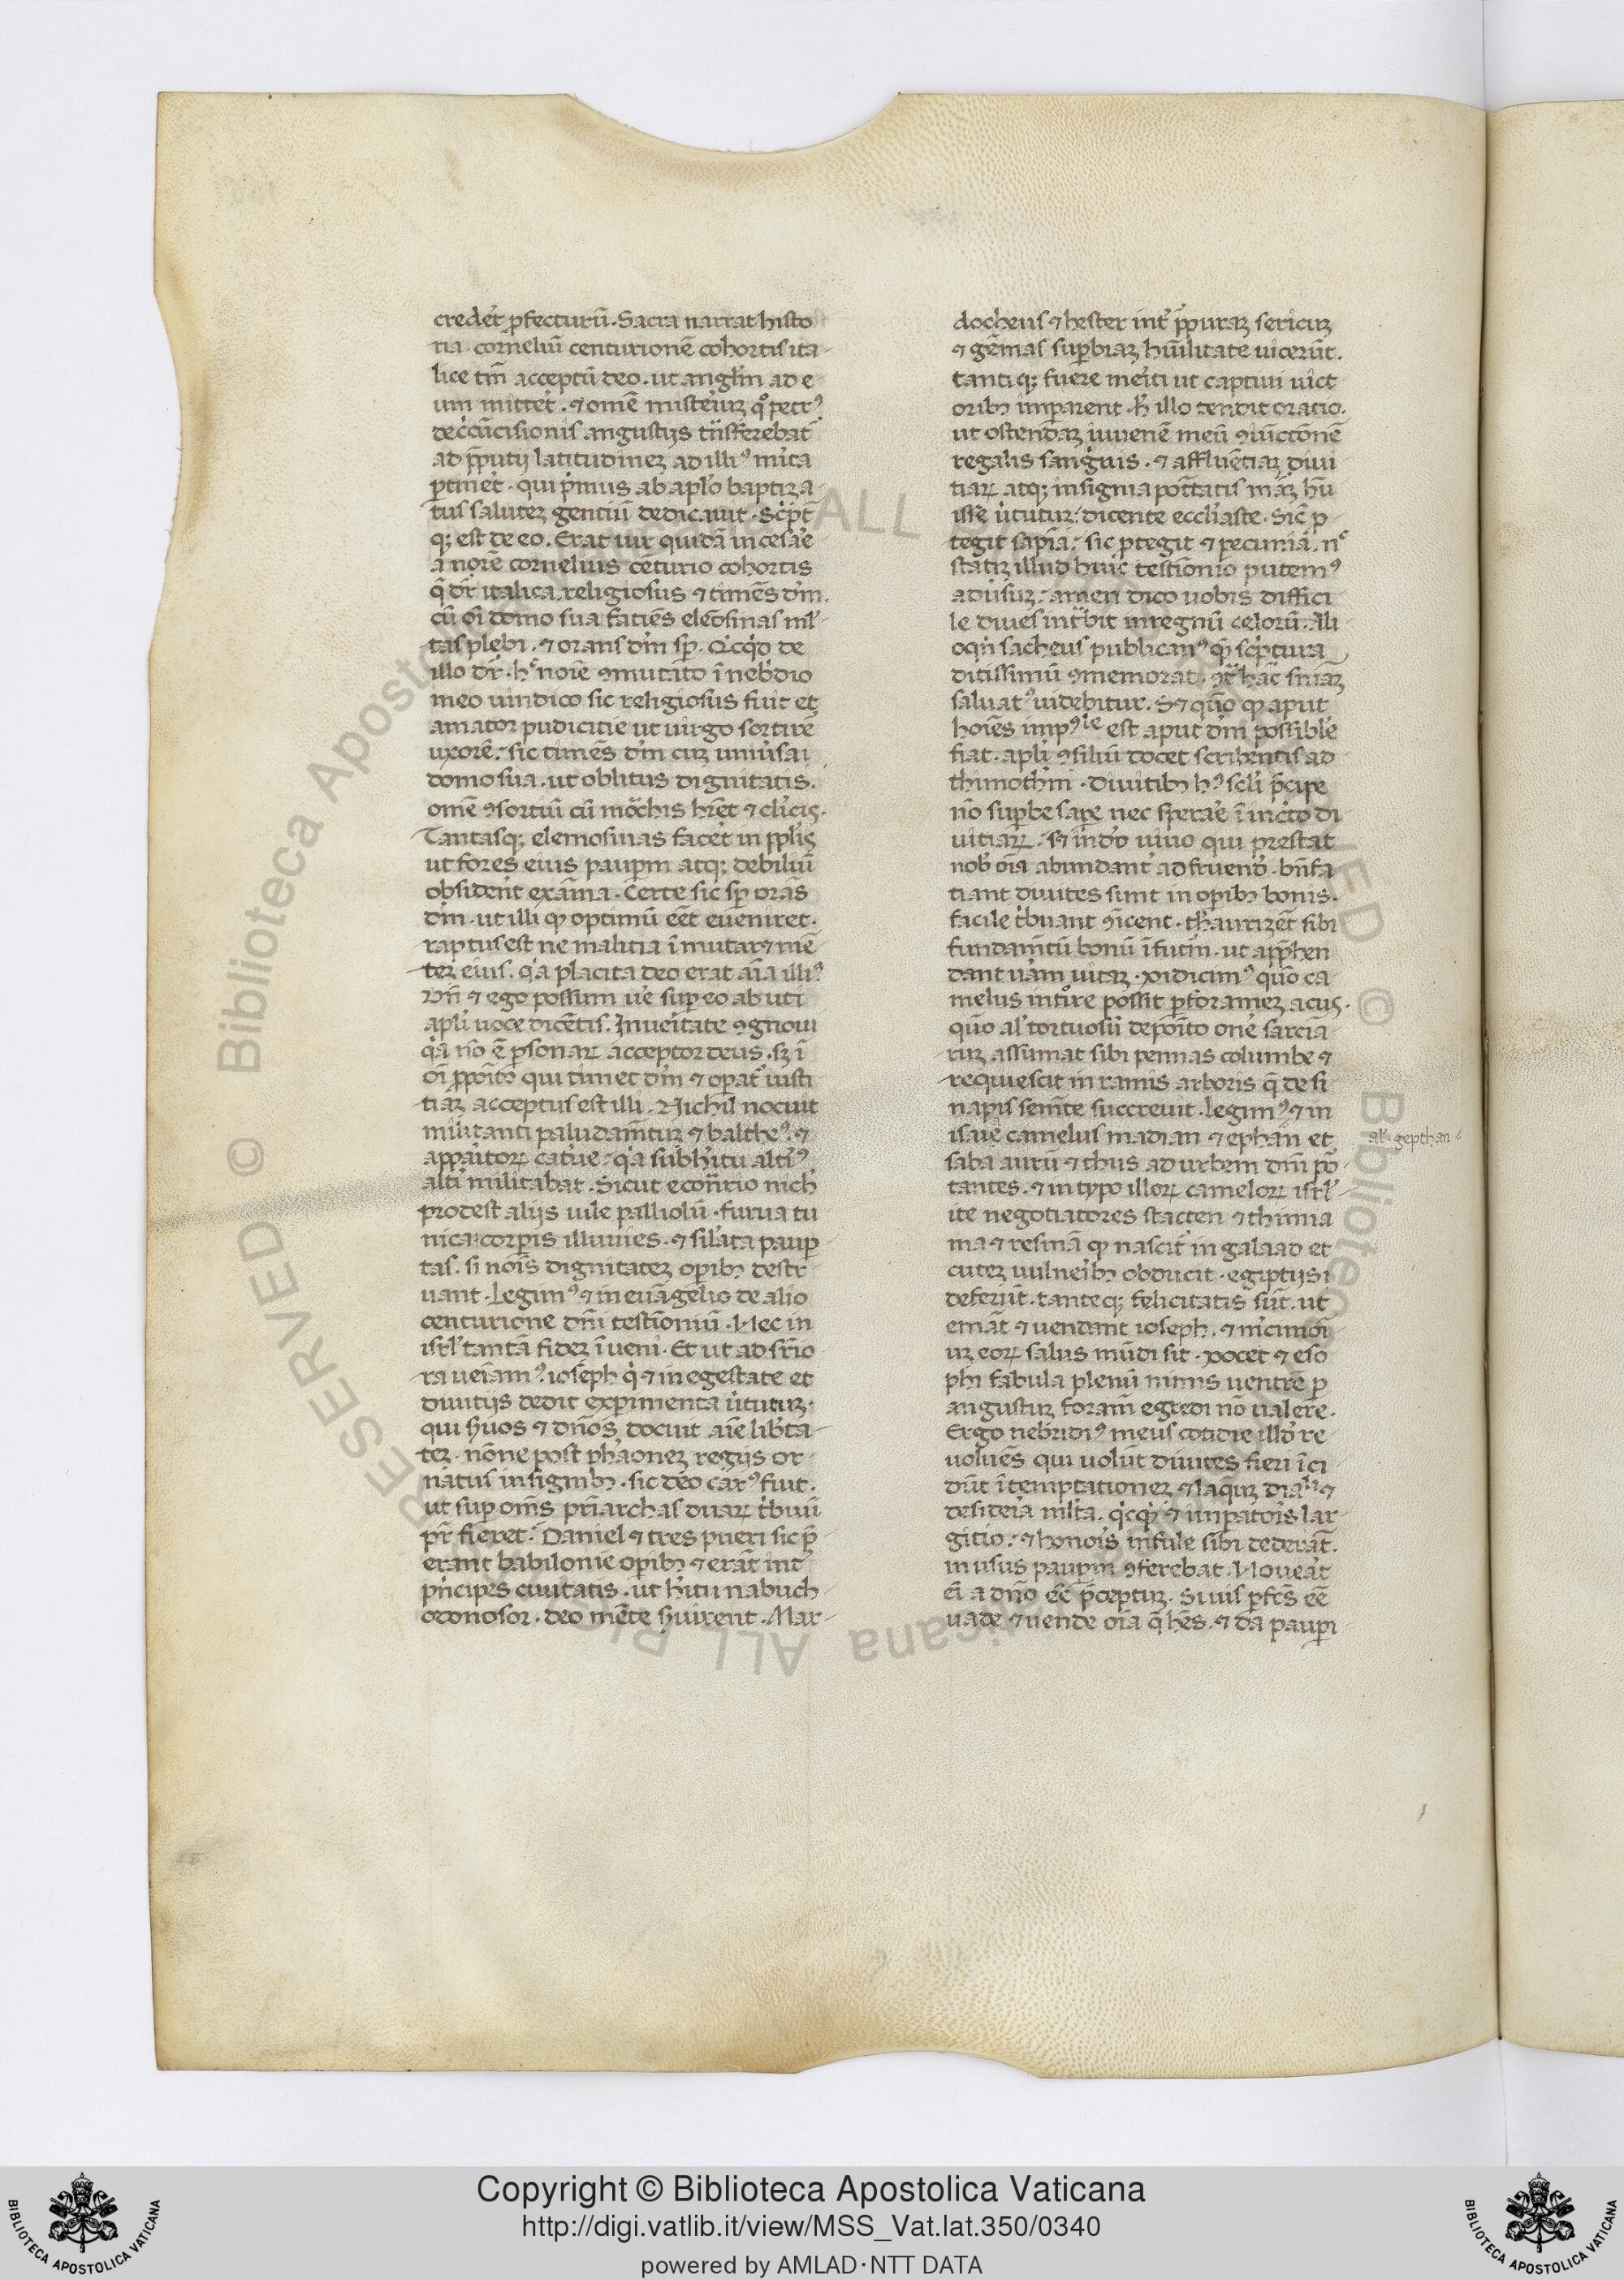 credēt ꝓfecturū. Sacra narrat histo
ria corneliū centurionē cohortis ita
lice tm̄ acceptū deo. ut angl̄m ad e
um mittēt. ⁊ omē misteriuꝫ qͦ petrꝰ
de cc̄ūcisionis angustijs tn̄sferebat̄
ad p̄putij latitudineꝫ ad illiꝰ mīta
ꝑtinēt. qui p̄mus ab apl̄o baptiza
tus saluteꝫ gentiū dedicauit. Sc̄pt̄
qꝫ est de eo. Erat uir quidā in cesāe
a noīe cornelius cēturio cohortis
q̄ dr̄ italica. religiosus ⁊ timēs dm̄.
cū oī domo sua faciēs elemosinas ml̄
tas plebi. ⁊ orans dm̄ sꝑ. Qcq̇d de
illo dr̄. hͨ noīe ꝯmutato ī nebdio
meo uindico sic religiosus fuit et
amator pudicitie ut uirgo sortirēt
uxorē. sic timēs dm̄ cuꝫ uniūsa
domo sua. ut oblitus dignitatis.
omē ꝯsortiū cū mōchis hr̄et ⁊ cl̄icis.
Tantasqꝫ elemosinas facēt in ppl̄is
ut fores eius pauꝑm atqꝫ debiliū
obsidērt exāmina. Certe sic sꝑ orās
dm̄. ut illi qͦ optimū eēt eueniret.
raptus est ne malitia īmutaret mē
teꝫ eius. q̇a placita deo erat aīa illiꝰ
Vn̄ ⁊ ego possum ūe suꝑ eo ab uti
apl̄i uoce dicētis. In ueritate ꝯgnoui
q̇a nō ē ꝑsonaꝝ acceptor deus. sꝫ ī
oī ppō̄to qui timet dm̄ ⁊ opat̄ iusti
tiaꝫ acceptus est illi. Nichil nocuit
militanti paludam̄tuꝫ ⁊ baltheꝰ. ⁊
appaītoꝝ cat̄ue. q̇a sub hītu altīꝰ
altī militabat. Sicut econt̄rio nich̄
prodest alijs uile palliolū. furua tu
nica corꝑis illuuies. ⁊ sil̄ata pauꝑ
tas. si noīs dignitateꝫ oꝑibꝫ destr
uant. Legimꝰ ⁊ in euāgelio de alio
centurione dm̄i testīoniū. Nec in
isrl̄ tantā fideꝫ īueni. Et ut ad sr̄io
ra ueīamꝰ. ioseph q̇ ⁊ in egestate et
diuitijs dedit exꝑimenta uīrtutuꝫ.
qui s̄uos ⁊ dn̄os docuit aīe lib̄ta
teꝫ. nōne post pharaoneꝫ regijs or
natus insignibꝫ. sic deo cārꝰ fuit.
ut suꝑ omn̄s pr̄iarchas duaꝝ tribuū
pr̄ fieret. Daniel ⁊ tres pueri sic p̄
erant babilonie oꝑibꝫ ⁊ erāt int̄
pn̄cipes ciuitatis. ut hītu nabuch
odonosor. deo mēte s̄uirent. Mar
docheus ⁊ hester int̄ ꝑpuraꝫ sericuꝫ
⁊ gēmas suꝑbiaꝫ hūilitate uicerūt.
tantiqꝫ fuere merīti ut captiui uict
oribꝫ imꝑarent. h̄ illo tendit oratio.
ut ostendaꝫ iuuenē meū ꝯiūctōnē
regalis sanguis. ⁊ affluētiaꝫ diui
tiaꝝ atqꝫ insignia pot̄tatis mr̄aꝫ hū
isse uīrtutuꝫ. dicente eccl̄iaste. Sic ꝓ
tegit sapīa. sic ꝓtegit ⁊ pecuniā. nͨ
statiꝫ illud huic testīonio putemꝰ
adūsuꝫ. amen dico uobis diffici
le diues int̄bit in regnū celorū. Ali
oqn̄ sacheus publicanꝰ qͣ sc̄ptura
ditissimū ꝯmemorat. ꝯt̄ hāc sn̄iaꝫ
saluatꝰ uidebitur. Sꝫ quō qͦ aput
hoīes impꝰˡᵉ est aput dm̄ possible
fiat. apl̄i ꝯsiliū docet scribentis ad
thimoth̄m. Diuitibꝫ hꝰ scl̄i p̄cipe
nō suꝑbe saꝑe nec sꝑare ī incto di
uitiaꝝ. sꝫ in dō uiuo qui prestat
nob̄ oīa abundant̄ ad fruend̄. bn̄fa
tiant diuites sint in oꝑibꝫ bonis.
facile t̄buant ꝯicent. thesaurizēt sibi
fundam̄tū bonū ī futm̄. ut app̄hen
dant uām uitaꝫ. Didicimꝰ quō ca
melus intrͦire possit ꝑ forameꝫ acus.
quō al̄ tortuosū depo̅ito on̄e sarcīa
ruꝫ assumat sibi pennas columbe ⁊
requiescit in ramis arboris q̄ de si
napis semīte succreuit. Legimꝰ ⁊ in
isaie camelus madian ⁊ ephan et
saba aurū ⁊ thus ad urbem dm̄i po
tantes. ⁊ in typo illoꝝ cameloꝝ isrl̄
ite negotiatores stacten ⁊ thimia
ma ⁊ resinā qͦ nascit̄ in galaad et
cuteꝫ uulneribꝫ obducit. egiptijs
deferūt. tanteqꝫ felicitatis sūt. ut
emāt ⁊ uendant ioseph. ⁊ m̄cimoī
uꝫ eoꝝ salus mūdi sit. Docet ⁊ eso
phi fabula plenū nimis uentrē ꝑ
angustuꝫ foram̄ egredi nō ualere.
Ergo nebridiꝰ meus cotidie illd̄ re
uoluēs qui uolūt diuites fieri īci
dūt ī temptationeꝫ ⁊ laqͣuꝫ dia̅lⁱ ⁊
desideria ml̄ta. q̇cqͥd ⁊ imꝑatoris lar
gitio. ⁊ honoris infule sibi dederāt.
in usus pauꝑm ꝯferebat. Noueāt
eī a dn̄o eē p̄ceptuꝫ. Si uis ꝑfēs eē
uade ⁊ uende oīa q̄ hēs. ⁊ da pauꝑi
al̄ gepthan
Copyright © Biblioteca Apostolica Vaticana
http://digi.vatlib.it/view/MSS_Vat.lat.350/0340
powered by AMLAD·NTT DATA
BIBLIOTECA APOSTOLICA VATICANA
BIBLIOTECA APOSTOLICA VATICANA